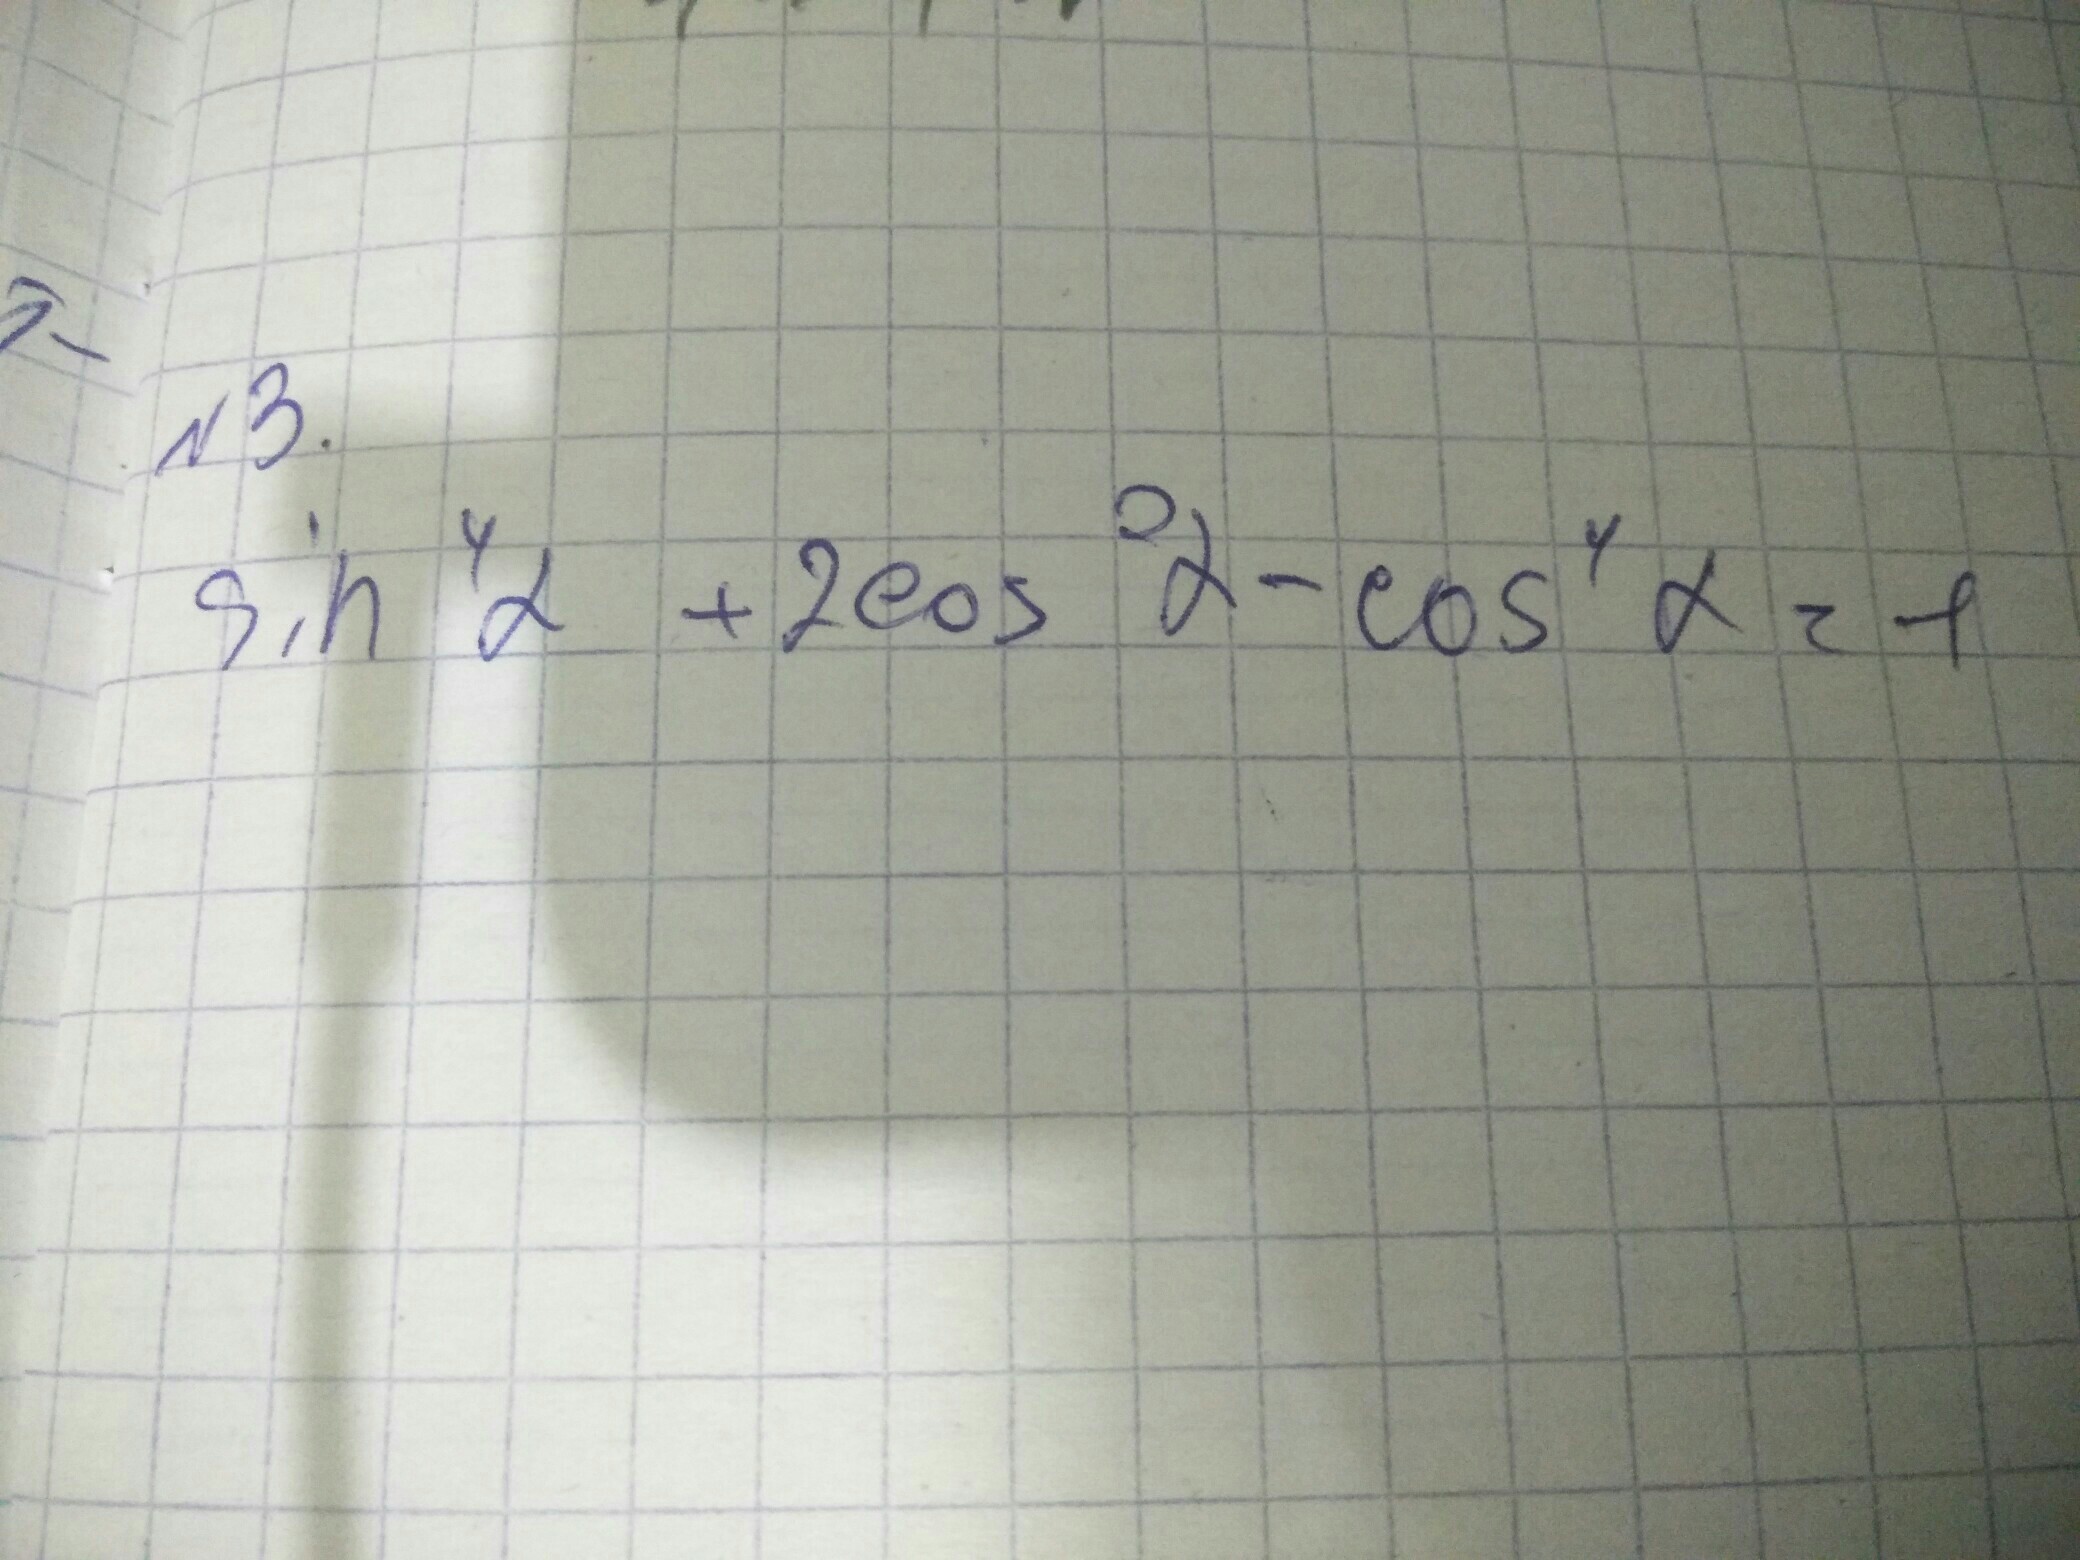 N3.
sin⁴α + 2cos²α - cos⁴α = 1